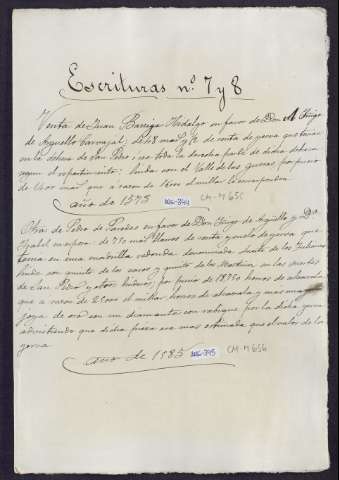 Escrituras nº 7 y 8
Venta de Juan Barriga Hidalgo en favor de Don Iñigo
de Arguello Carvajal, de 48 mas y ½ de renta de yerva que tenia
en la dehesa de San Pedro, con toda la derecha parte de dicha dehesa
segun el repartimiento; linda con el Valle de las por precio
de que a razon de el millar le correspondia
año de 1575 CM-M 655
Otra de Pedro de Paredes en favor de Don Iñigo de Arguello y Dª
Isabel su esposa de 750 mas llanos de renta y suelo de yerva que
tenia en una rinda denominada
linde con quinto de los y quinto de la en los montes
de San Pedro y otros linderos, por precio de 18750 horros de alcavala
que a razon de 25000 el millar horros de alcavala y mas una
joya de oro con un diamante con por la dicha yerva
advirtiendo que dicha pieza era mas estimada que el valor de la
yerva
año de 1585 CM-M 656